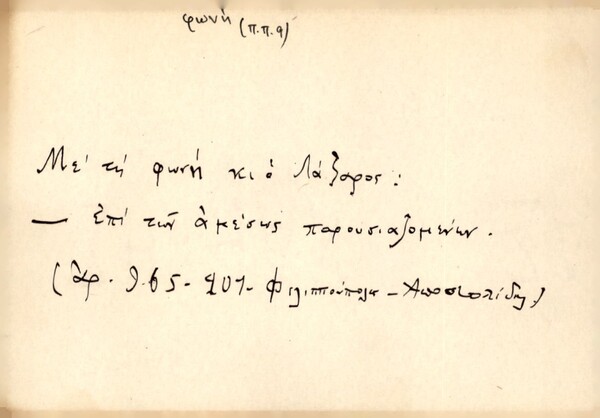 φωνή (π.π.9)
Μέ τή φωνή κι ὁ Λάζαρος :
— Ἐπί τῶν ἀμέσως παρουσιαζομένων .
(Ἀρ. 965 - 201 - Φιλιππούπολις - Ἀποστολίδης)